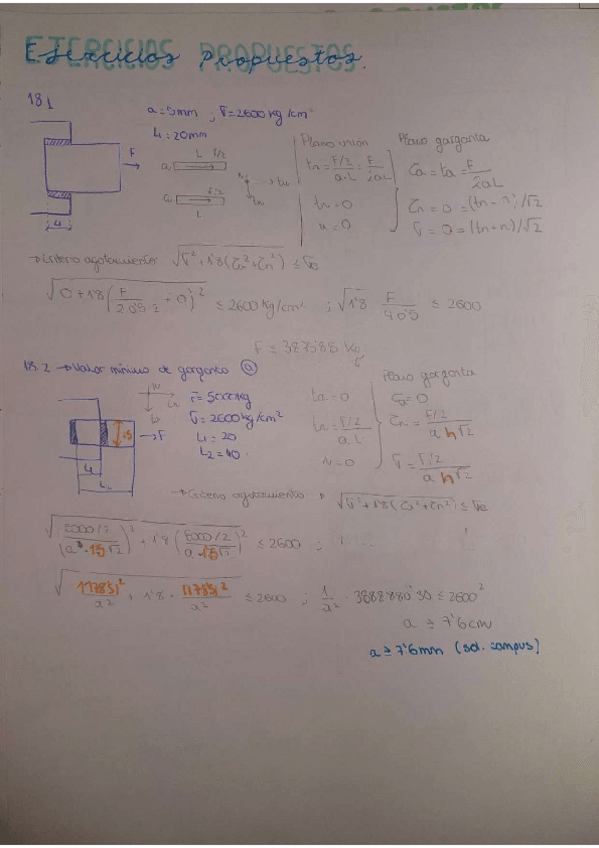 EJERCICIOS PROPUESTOS
Ejercicios Propuestos.
18.1
a=5mm ; σ=2600 kg/cm²
L1=20mm
F
L1
a
L
F/2
a
L
F/2
Plano unión
ta = F/2 / a·L = F / 2aL
tn=0
n=0
Plano garganta
τa = ta = F / 2aL
τn = 0 = (tn - n)/√2
σ = 0 = (tn+n)/√2
→ Criterio agotamiento √σ²+1'8(τa²+τn²) ≤ σe
≤ 2600 kg/cm² ; √1'8 F / 4·0'5 ≤ 2600
F ≤ 3875'88 kg
18.2 → Valor mínimo de garganta a
F=5000kg
σ=2600kg/cm²
L1=20
L2=40
15
→F
L1
ta=0
tn = F/2 / a·L
n=0
Plano garganta
τa=0
τn = F/2 / a h √2
σ = F/2 / a h √2
→ Criterio agotamiento → √σ²+1'8(τa²+τn²) ≤ σe
√(5000/2 / a·15√2)² + 1'8 (5000/2 / a·15√2)² ≤ 2600 ;
√117'851² / a² + 1'8 · 117'851² / a² ≤ 2600 ; 1/a² · 38888'30 ≤ 2600²
a ≥ 7'6cm
a ≥ 7'6mm (sol. campus)